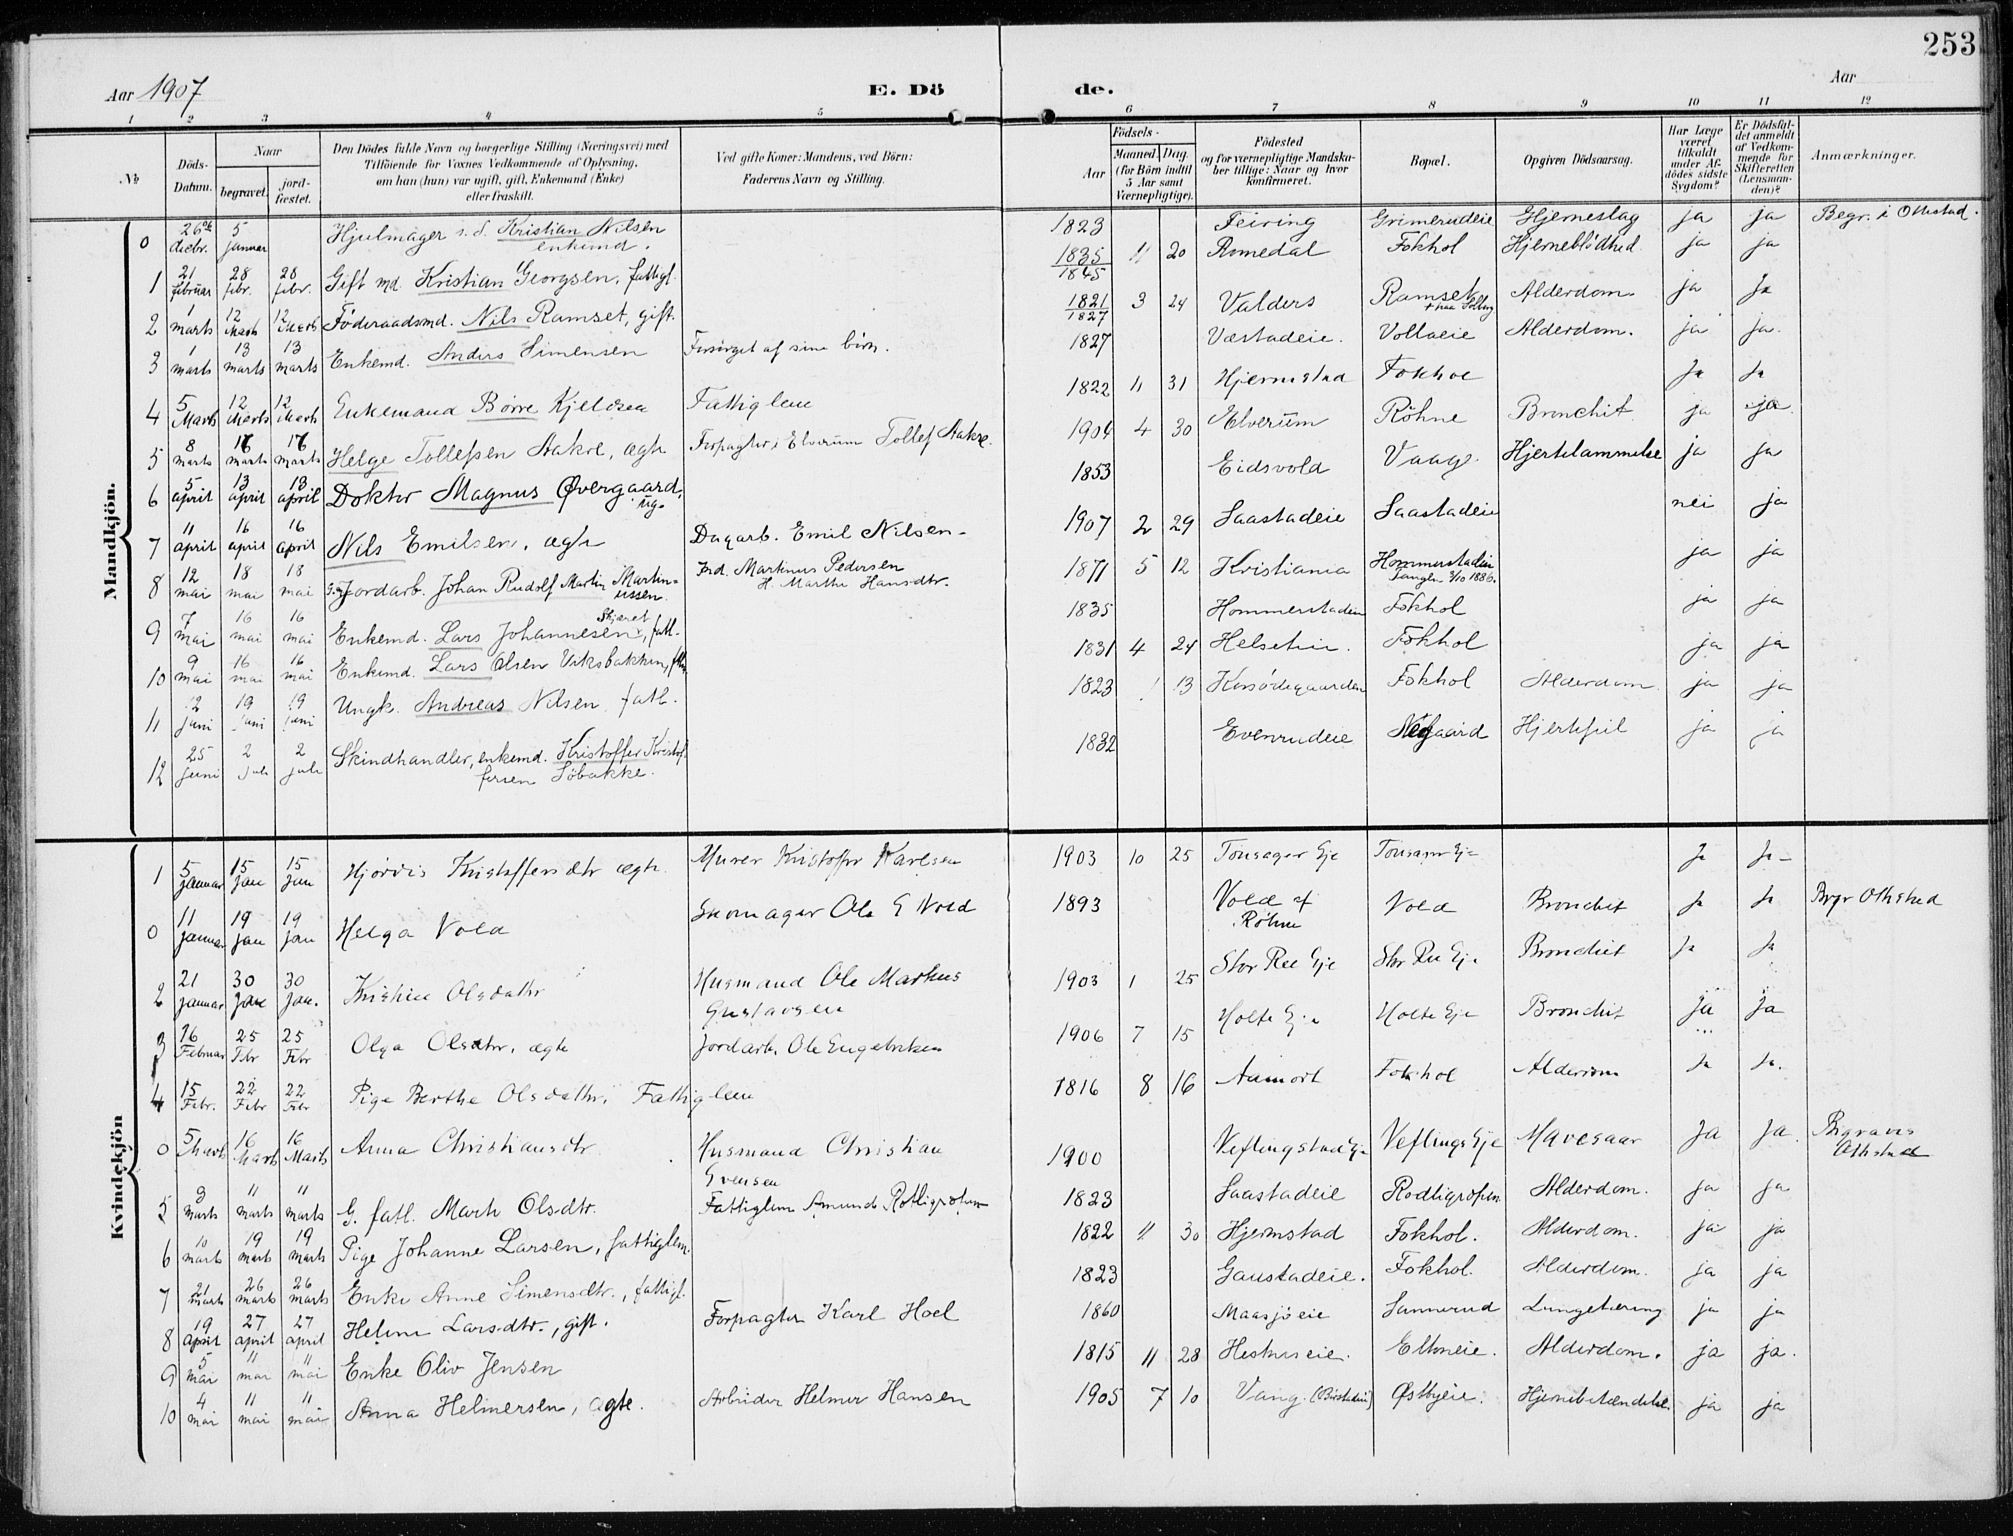 253
Aar 1907
E. Dö
de.
Aar
1 2 3 4 5 6 7 8 9 10 11 12
№
Döds-Datum.
Naar
begravet.
jord-fæstet.
Den Dödes fulde Navn og borgerlige Stilling (Næringsvei) med
Tilföiende for Voxnes Vedkommende af Oplysning,
om han (hun) var ugift, gift, Enkemand (Enke)
eller fraskilt.
Ved gifte Koner: Mandens, ved Börn:
Faderens Navn og Stilling.
Födsels-
Aar
Maaned. Dag.
(for Börn indtil
5 Aar samt
Værnepligtige).
Födested
og for værnepligtige Mandska-
ber tillige: Naar og hvor
konfirmeret.
Bopæl.
Opgiven Dödsaarsag.
Har Læge
været
tilkaldt
under Af-
dødes sidste
Sygdom?
Er Dödsfal-
det anmeldt
af Vedkom-
mende for
Skifteretten
(Lensman-
den)?
Anmærkninger.
Mandkjön.
0 26de decbr. 5 januar Hjulmager Kristian Nilsen enkemd. 1823 Feiring Grimerudeie Hjerneslag ja ja Begr. i Ottestad.
1 21 februar 28 febr. 28 febr. Gift md Kristian Georgsen, fattigl. 1835 1845 11 20 Romedal Fokhol Hjerneblødhed ja ja
2 1 marts 12 Marts 12 Marts Föderaadsmd. Nils Ramset, gift. 1821 1827 3 24 Valders Ramset Alderdom ja ja
3 1 marts 13 marts 13 marts Enkemd. Anders Simensen Forsørget af sine börn. 1827 Væstadeie. Vollaeie Alderdom. ja ja.
4 5 Marts 12 Marts 12 Marts Enkemand Börre Kjeldsen Fattiglem 1822 11 31 Hjermstad Fokhol Ja Ja
5 8 marts 16 marts 17 marts Helge Tollefsen Aakre, ægte Forpagter i Elverum Tollef Aakre. 1904 4 30 Elverum Röhne Bronchit ja ja.
6 5 april 13 april 13 april Doktor Magnus Øvergaard, ug. 1853 Eidsvold Vaag. Hjertelammelse ja ja
7 11 april 16 april 16 april Nils Emilsen, ægte Dagarb. Emil Nilsen 1907 2 29 Saastadeie Saastadeie nei ja
8 12 mai 18 mai 18 mai Jordarb. Johan Rudolf Martin Martin-
ussen. Ind. Martinus Pedersen
H. Marthe Hansdtr. 1871 5 12 Kristiania Hommerstadeie
Tangen 3/10 1886. ja ja
9 7 mai 16 mai 16 mai Enkemd. Lars Johannesen Skjæret, fatl. 1835 Hommerstadeie Fokhol ja ja
10 9 mai 16 mai 16 mai Enkemd. Lars Olsen Viksbakken, 1831 4 24 Helseteie. Fokhol ja ja
11 2 juni 19 juni 19 juni Ungk. Andreas Nilsen fatl. 1823 1 13 Korsödegaarden Fokhol Alderdom. ja ja
12 25 juni 2 juli 2 juli Skindhandler, enkemd. Kristoffer Kristof-
fersen Söbakke. 1832 Evenrudeie Nergaard Hjertefeil ja ja
Kvindekjön
1 5 januar 15 Jan 15 Jan Hjørdis Kristoffersdtr ægte. Murer Kristoffer Karlsen 1903 10 25 Tonsager Eje Tonsager Eje Ja Ja
0 11 januar 19 jan 19 jan Helga Vold Skomager Ole G Vold 1893 Vold af
Röhne Vold Bronchit Ja Ja Begr Ottestad
2 21 januar 30 jan 30 jan. Kristine Olsdatter Husmand Ole Markus
Gustavsen 1903 1 25 Stor Ree Eje Stor Ree Eje Bronchit Ja Ja
3 16 Februar 25 Febr 25 Febr Olga Olsdtr, ægte Jordarb. Ole Engebretsen 1906 7 15 Holte Eje Holte Eje Bronchit Ja Ja
4 15 Febr. 22 Febr 22 Febr Pige Berthe Olsdatter, Fattiglem 1816 8 16 Aamodt Fokhol Alderdom Ja Ja.
0 5 Marts 16 Marts 16 Marts Anna Christiansdtr. Husmand Christian
Evensen 1900 Veflingstad Eje Veflings Eje Mavesaar Ja Ja. Begraves
Ottestad
5 3 marts 11 marts 11 marts G. fatl. Marte Olsdtr. Fattiglem Amund Rotligropen 1823 Saastadeie Rodligropen Alderdom. ja ja
6 10 marts 19 marts 19 marts Pige Johanne Larsen, fattiglem. 1822 11 30 Hjermstad Fokhol. Alderdom. ja ja
7 21 marts 26 marts 26 marts Enke Anne Simensdtr., fattigl. 1823 Gaustadeie. Fokhol. Alderdom. ja ja
8 19 april 27 april 27 april Helene Larsdtr., gift. Forpagter Karl Hoel 1860 Maasjöeie Sannerud Lungetæring ja ja
9 5 mai 11 mai 11 mai Enke Oliv Jensen 1815 11 28 Heskueie. Eltoneie. Alderdom. ja ja.
10 4 mai 11 mai 11 mai Anna Helmersen, ægte. Arbeider Helmer Hansen 1905 7 10 Vang. Østbyeie. Hjernebetændelse. ja ja